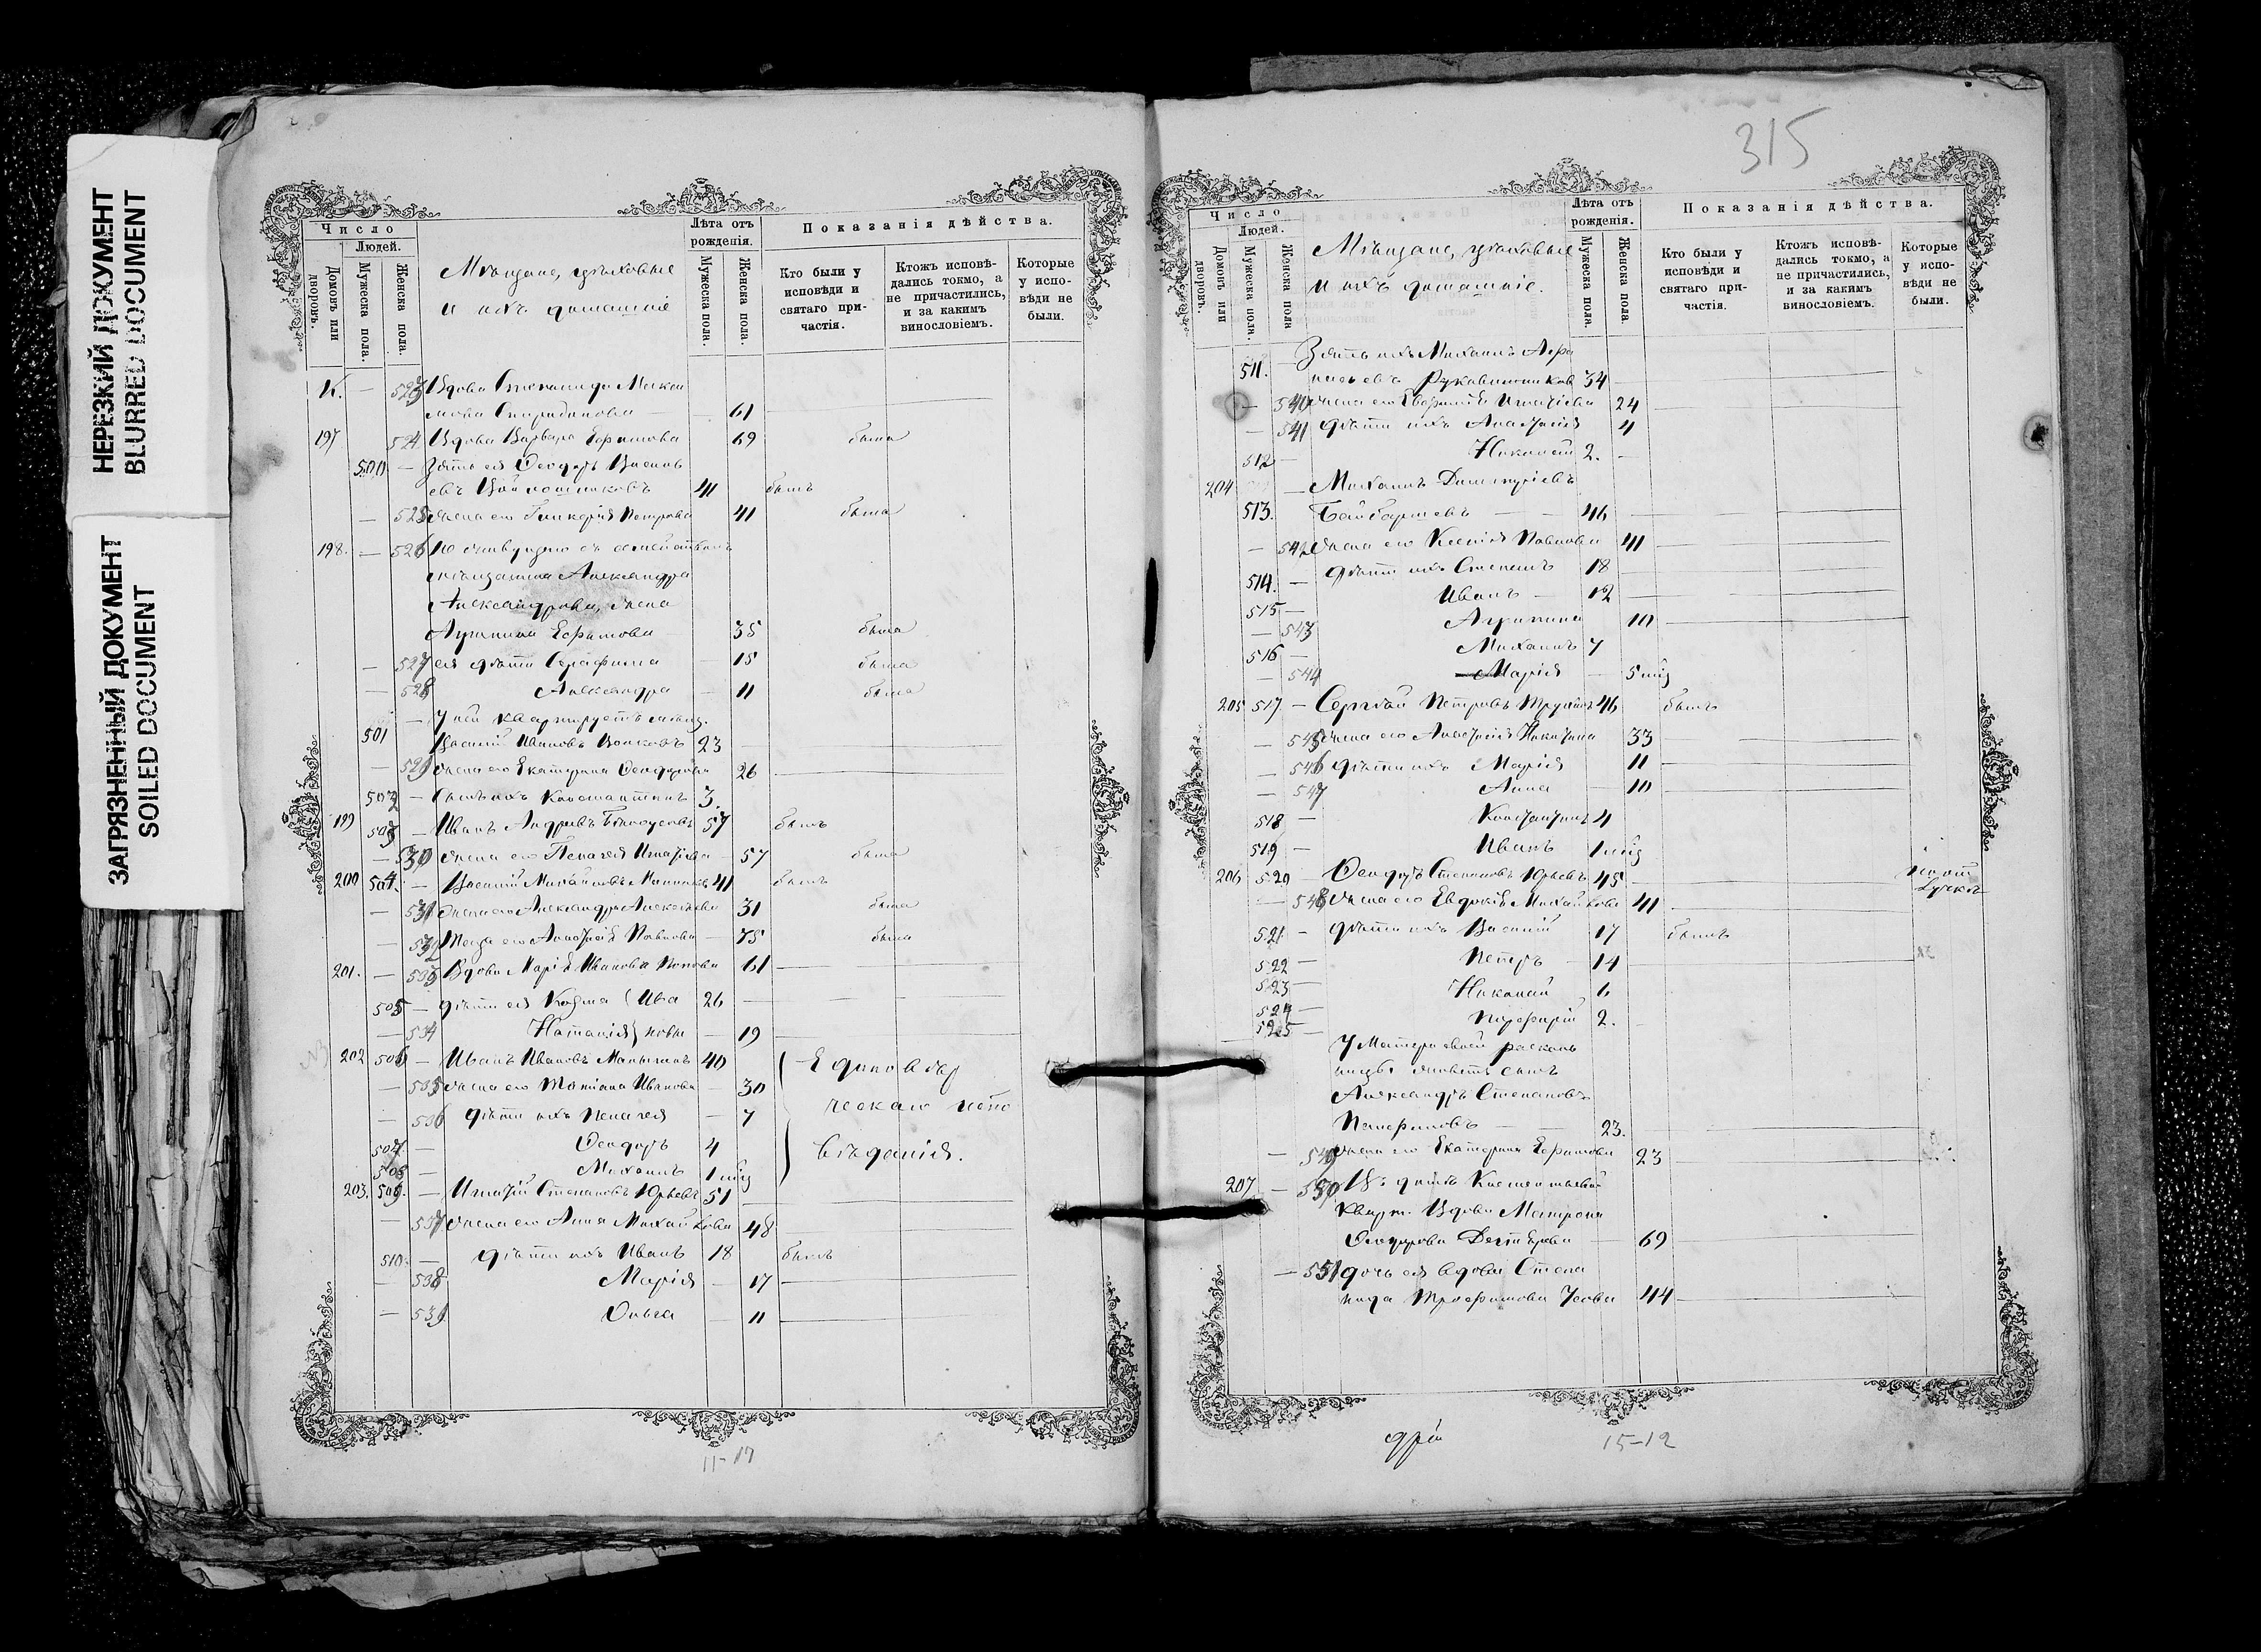 НЕРЕЗКИЙ ДОКУМЕНТ
BLURRED DOCUMENT
ЗАГРЯЗНЕННЫЙ ДОКУМЕНТ
SOILED DOCUMENT
Число
Людей.
Домовъ или дворовъ.
Мужеска пола.
Женска пола.
Мѣщане, цѣховые
и ихъ домашніе
Лѣта отъ рожденія.
Мужеска пола.
Женска пола.
Показанія дѣйства.
Кто были у исповѣди и святаго причастія.
Ктожъ исповѣдались токмо, а не причастились, и за какимъ винословіемъ.
Которые у исповѣди не были.
523 Вдова Степанида
Спиридонова — 61
197 524 Вдова Варвара Ефимова 69 была
500 — Зять ея Ѳеодоръ Василь
евъ Войлошниковъ 41 былъ
— 525 Жена его Гликерія Петрова 41 была
198. — 526
мѣщанина Александра
Александрова, жена
Ефимова — 35 была
— 527 ея дѣти Серафима — 15 была
— 528 Александра — 11 была
— У ней квартируетъ мѣщ.
501 Василій Ивановъ Волковъ 23
— 529 Жена его Екатерина Ѳеодорова 26
502 — Сынъ ихъ Константинъ 3.
199 503 — Иванъ Андреевъ Бѣлоусовъ 57 былъ
— 530 Жена его Пелагея Игнатіева — 57 была
200 504. — Василій Михайловъ 41 былъ
— 531 Жена его Александра Алексѣева 31 была
— 532 Теща его Анастасія Павлова — 75 была
201. — 533 Вдова Марія Иванова Попова 61
505 — дѣти ея Козма (Ива 26
— 534 Наталія) новы — 19
202 506 — Иванъ Ивановъ Малышевъ 40
— 535 Жена его Татіана Иванова — 30
— 536 дѣти ихъ Пелагея — 7
507. — Ѳеодоръ 4
508 — Михаилъ 1 мѣс
Единовѣр
ческаго испо
вѣданія.
203. 509. — Игнатій Степановъ Юрьевъ 51
— 537 Жена его Анна Михайлова 48
510. — дѣти ихъ Иванъ 18 былъ
— 538 Марія — 17
— 539 Ольга — 11
11-17
315
Число
Людей.
Домовъ или дворовъ.
Мужеска пола.
Женска пола
Мѣщане, цѣховые
и ихъ домашніе.
Лѣта отъ рожденія.
Мужеска пола.
Женска пола.
Показанія дѣйства.
Кто были у исповѣди и святаго причастія.
Ктожъ исповѣдались токмо, а не причастились, и за какимъ винословіемъ.
Которые у исповѣди не были.
Зять ихъ Михаилъ Аѳа
511. насьевъ Рукавишниковъ 34
— 540 Жена его Евфимія Игнатіева 24
— 541 дѣти ихъ Анастасія 4
512 — Николай 2.
204 — Михаилъ Димитріевъ
513. — 46
— 542 Жена его Ксенія Павлова 41
514. — дѣти ихъ Степанъ 18
515 — Иванъ — 12
— 543 Агрипина 10
516 — Михаилъ 7
— 544 Марія — 5 мѣс
205 517 — Сергѣй Петровъ 46 былъ
— 545 Жена его Анастасія Никитина 33
— 546 дѣти ихъ Марія 11
— 547 Анна — 10
518 — Константинъ 4
519 — Иванъ 1 мѣс
206 520 Ѳеодоръ Степановъ Юрьевъ 45 по от
лучкѣ
— 548 Жена его Евдокія Михайлова 41
521 — дѣти ихъ Василій 17 былъ
522 — Петръ — 14
523 — Николай 6
524 — Порфирій 2.
525 —
У Матери своей расколь
ницы живетъ сынъ
Александръ Степановъ
— 23.
— 549 Жена его Екатерина Ефимова 23
207 — 550 Въ домѣ
кварт. Вдова Матрона
Ѳеодорова — 69
— 551 дочь ея вдова Степа
нида Трофимова Усова 44
15-12